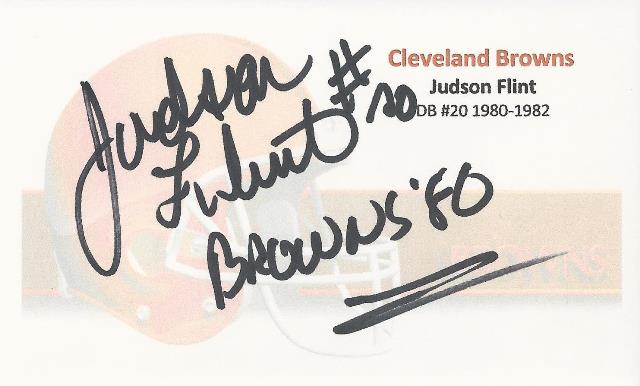 Cleveland Browns
Judson Flint
DB #20 1980-1982
Judson #20
Flint
BROWNS '80
BROWNS